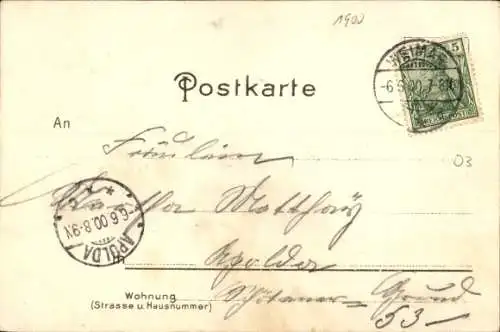 1900
WEIMAR
5
-6.6.00.7-8N
Postkarte
An
Fräulein
03
Martha Matthäy
6.6.00.8-9N
APOLDA
Apolda
Wohnung
(Strasse u. Hausnummer)
Grund
53